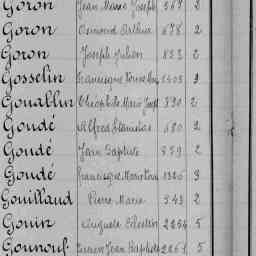 Goron Jean Marie Joseph 567 2
Goron Osmond Arthur 678 2
Goron Joseph Julien 853 2
Gosselin 1408 3
Gouablin Théophile Marie Joseph 890 2
Goudé Alfred Stanislas 680 2
Goudé Jean Baptiste 859 2
Goudé Françoise Marie 1326 3
Gouillaud Pierre Marie 543 2
Gouin Auguste Célestin 2254 5
Gounouf Jean Baptiste 2261 5